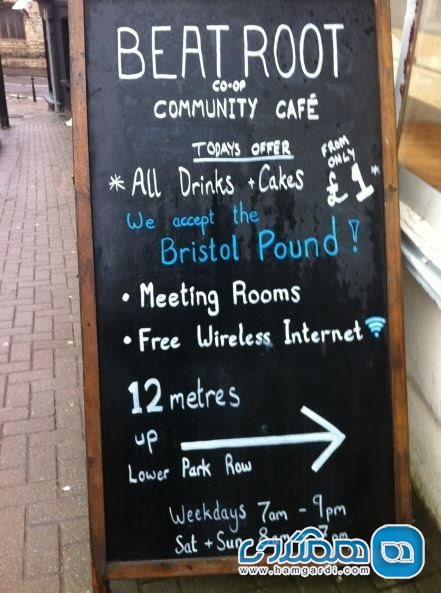 BEATROOT
CO-OP
COMMUNITY CAFÉ
TODAYS OFFER
* All Drinks + Cakes
FROM ONLY
£1*
We accept the
Bristol Pound!
• Meeting Rooms
• Free Wireless Internet
12 metres
up
Lower Park Row
Weekdays 7am - 9pm
Sat + Sun 8am 7am
همگردی
www.hamgardi.com